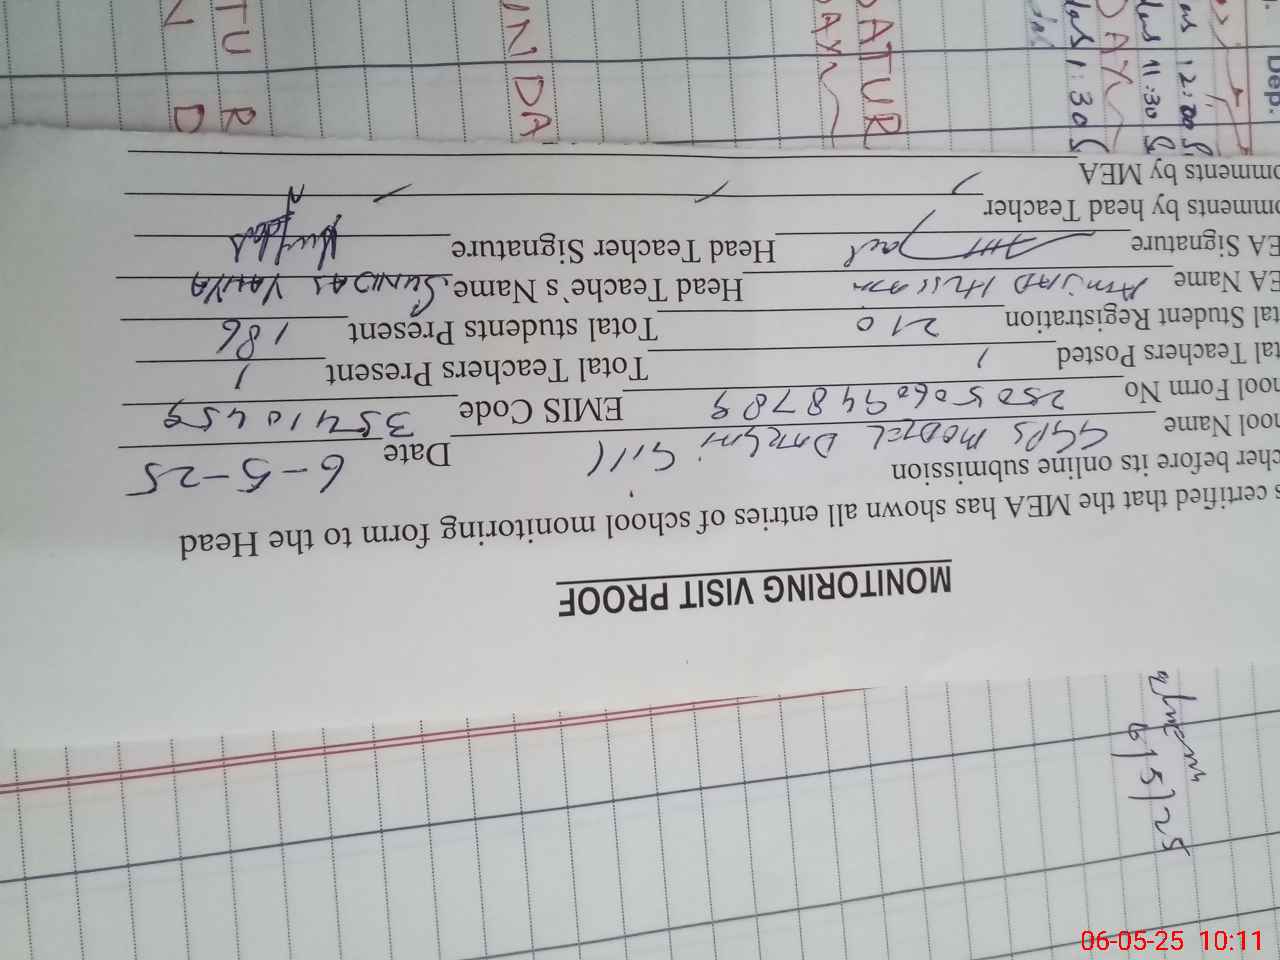 MONITORING VISIT PROOF
s certified that the MEA has shown all entries of school monitoring form to the Head
cher before its online submission
Date 6-5-25
hool Name GGPS MODEL
hool Form No 2505060948789 EMIS Code 35410459
tal Teachers Posted 1 Total Teachers Present 1
tal Student Registration 210 Total students Present 186
EA Name AMJAD Hussain Head Teache`s Name SUNDAS YAHYA
EA Signature Head Teacher Signature
omments by head Teacher
omments by MEA
6/5/25
SATUR
DAY
UNDA
TU R
D
Dep.
12:00
11:30
1:30
DAY
06-05-25 10:11